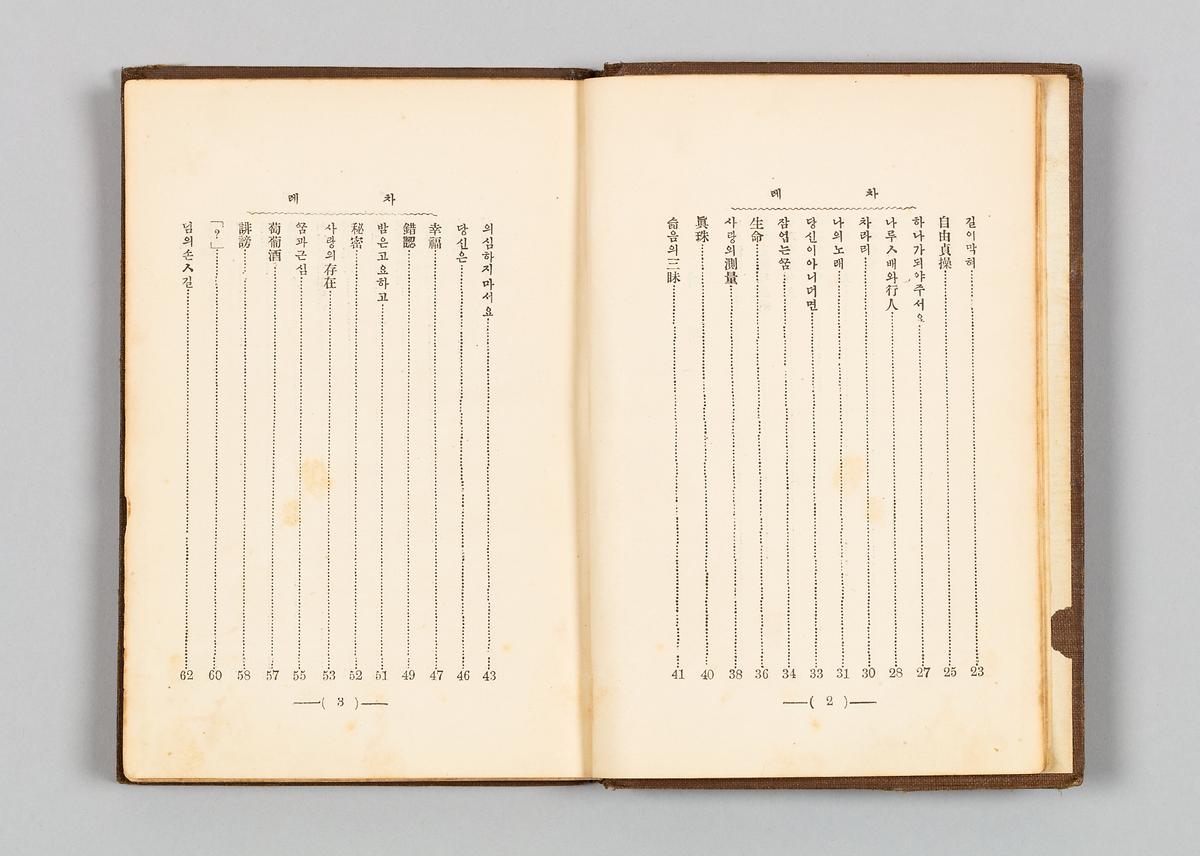 차 례
길이막혀 23
自由貞操 25
하나가되야주서요 27
나루ㅅ배와行人 28
차라리 30
나의노래 31
당신이아니더면 33
잠업는ᄭᅮᆷ 34
生命 36
사랑의測量 38
眞珠 40
슯음의三昧 41
( 2 )
차 례
의심하지마서요 43
당신은 46
幸福 47
錯認 49
밤은고요하고 51
秘密 52
사랑의存在 53
ᄭᅮᆷ과근심 55
葡萄酒 57
誹謗 58
「?」 60
님의손ㅅ길 62
( 3 )